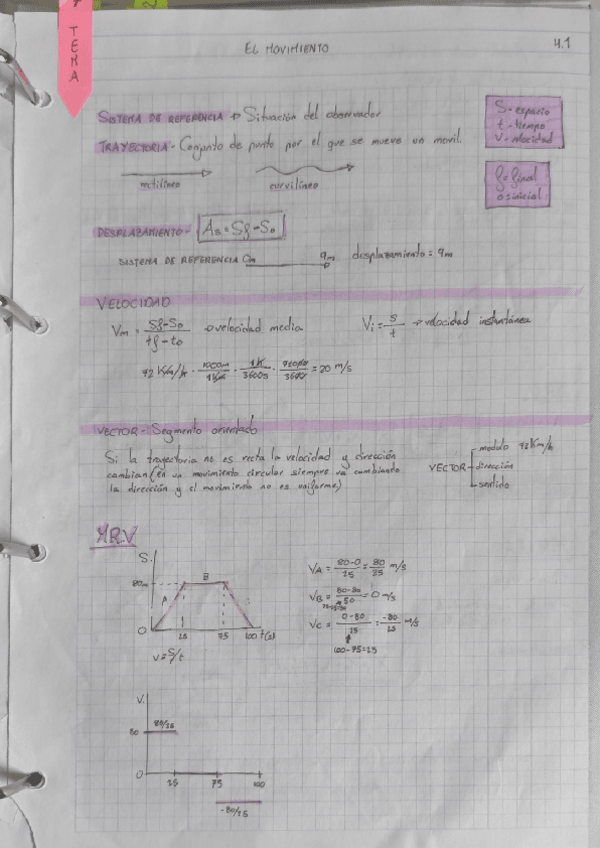 TEMA
EL MOVIMIENTO
4.1
SISTEMA DE REFERENCIA → Situación del observador
TRAYECTORIA - Conjunto de punto por el que se mueve un movil.
rectilíneo
curvilíneo
S - espacio
t - tiempo
V - velocidad
f = final
o = inicial
DESPLAZAMIENTO - As = Sf - So
SISTEMA DE REFERENCIA 0m 9m desplazamiento = 9m
VELOCIDAD
Vm = Sf-So / tf-to → velocidad media
Vi = s/t → velocidad instantánea
72 Km/h · 1000m/1Km · 1h/3600s · 72000/3600 = 20 m/s
VECTOR - Segmento orientado
Si la trayectoria no es recta la velocidad y dirección
cambian (en un movimiento circular siempre va cambiando
la dirección y el movimiento no es uniforme)
VECTOR
modulo 72 Km/h
dirección
sentido
MRV
S.
80m
A
B
0
25
75
100
t(s)
v = S/t
VA = 80-0/25 = 80/25 m/s
VB = 80-80/50 = 0 m/s
VC = 0-80/25 = -80/25 m/s
100-75=25
V.
80
80/25
0
25
75
100
-80/25